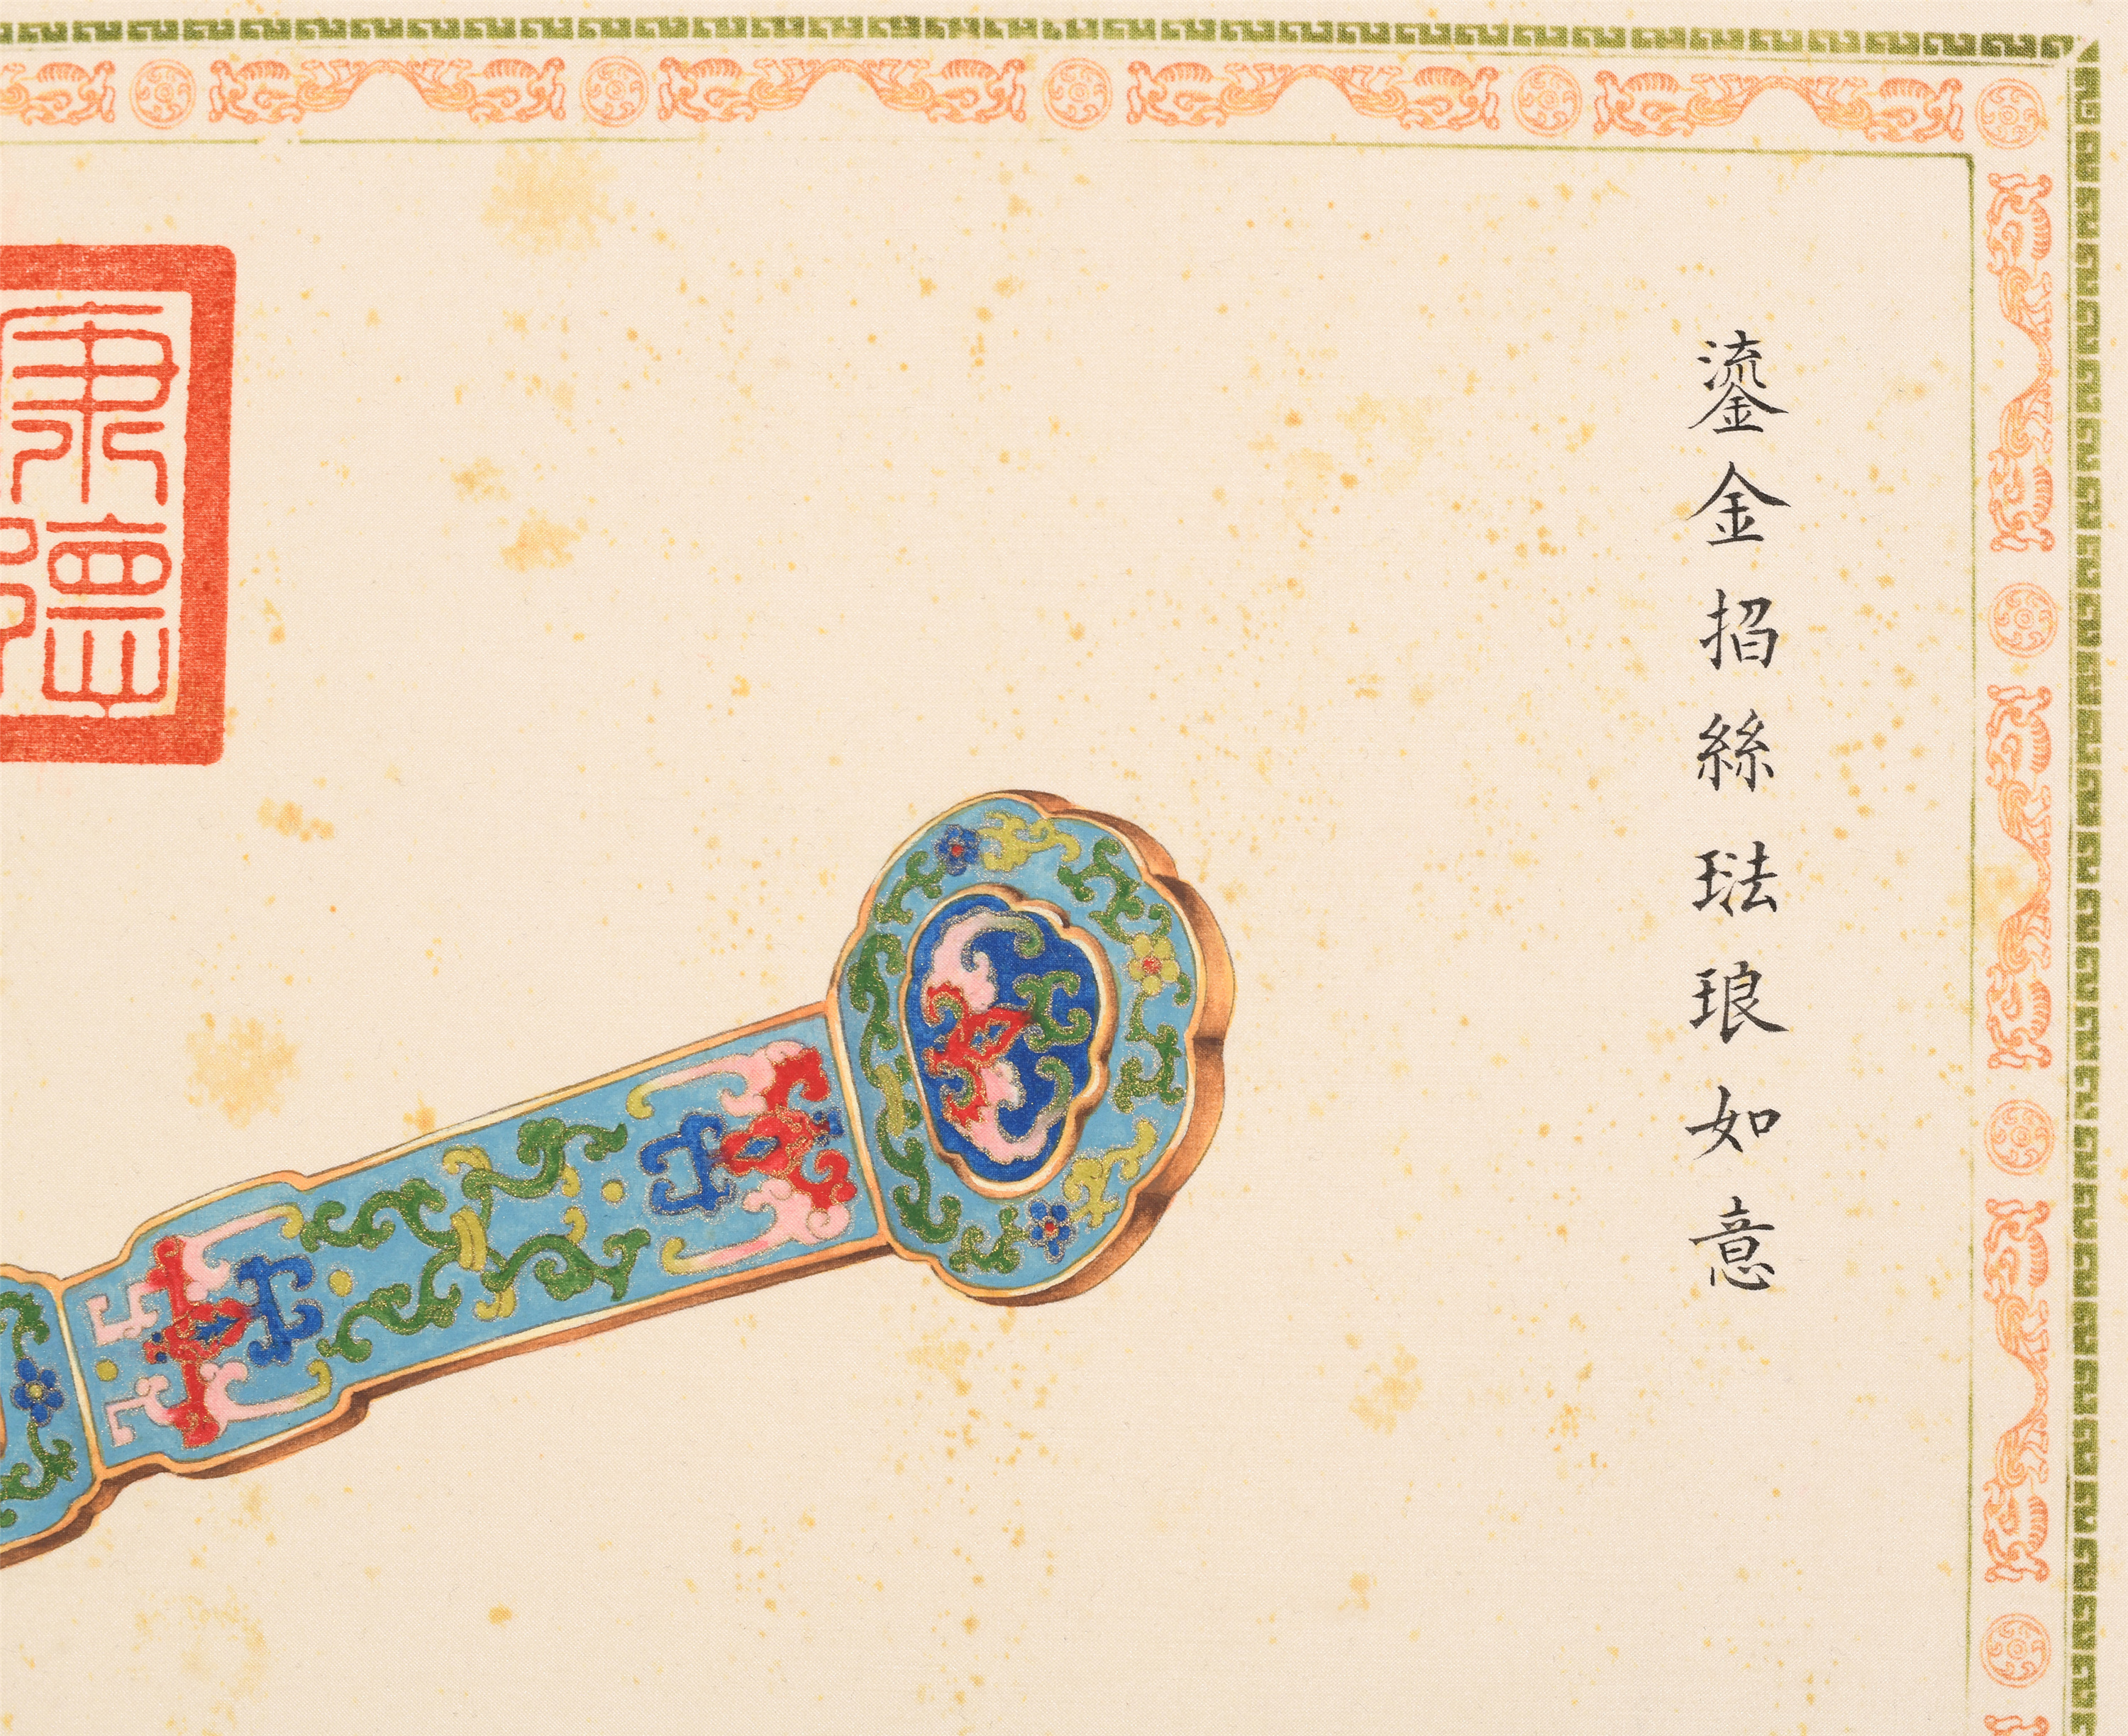 鎏金掐絲琺琅如意
康德